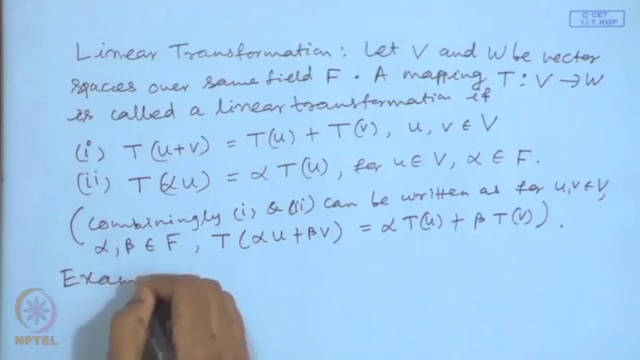 © CET
I.I.T. KGP
Linear Transformation: Let V and W be vector
spaces over same field F. A mapping T: V → W
is called a linear transformation if
(i) T(u+v) = T(u) + T(v), u, v ∈ V
(ii) T(αu) = α T(u), for u ∈ V, α ∈ F.
(Combiningly (i) & (ii) can be written as for u, v ∈ V,
α, β ∈ F, T(αu + βv) = α T(u) + β T(v)).
Exam
NPTEL